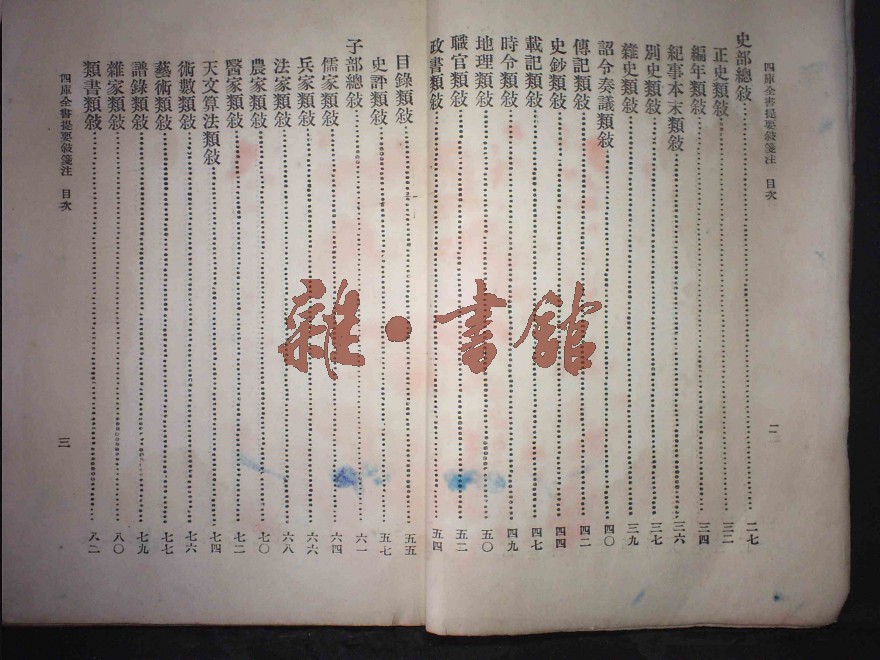 四庫全書提要敍箋注 目次 二
史部總敍 二七
正史類敍 三二
編年類敍 三四
紀事本末類敍 三六
別史類敍 三七
雜史類敍 三九
詔令奏議類敍 四〇
傳記類敍 四二
史鈔類敍 四四
載記類敍 四七
時令類敍 四九
地理類敍 五〇
職官類敍 五二
政書類敍 五四
目錄類敍 五五
史評類敍 五七
子部總敍 六一
儒家類敍 六四
兵家類敍 六六
法家類敍 六八
農家類敍 七〇
醫家類敍 七二
天文算法類敍 七四
術數類敍 七六
藝術類敍 七七
譜錄類敍 七九
雜家類敍 八〇
類書類敍 八二
四庫全書提要敍箋注 目次 三
雜·書館